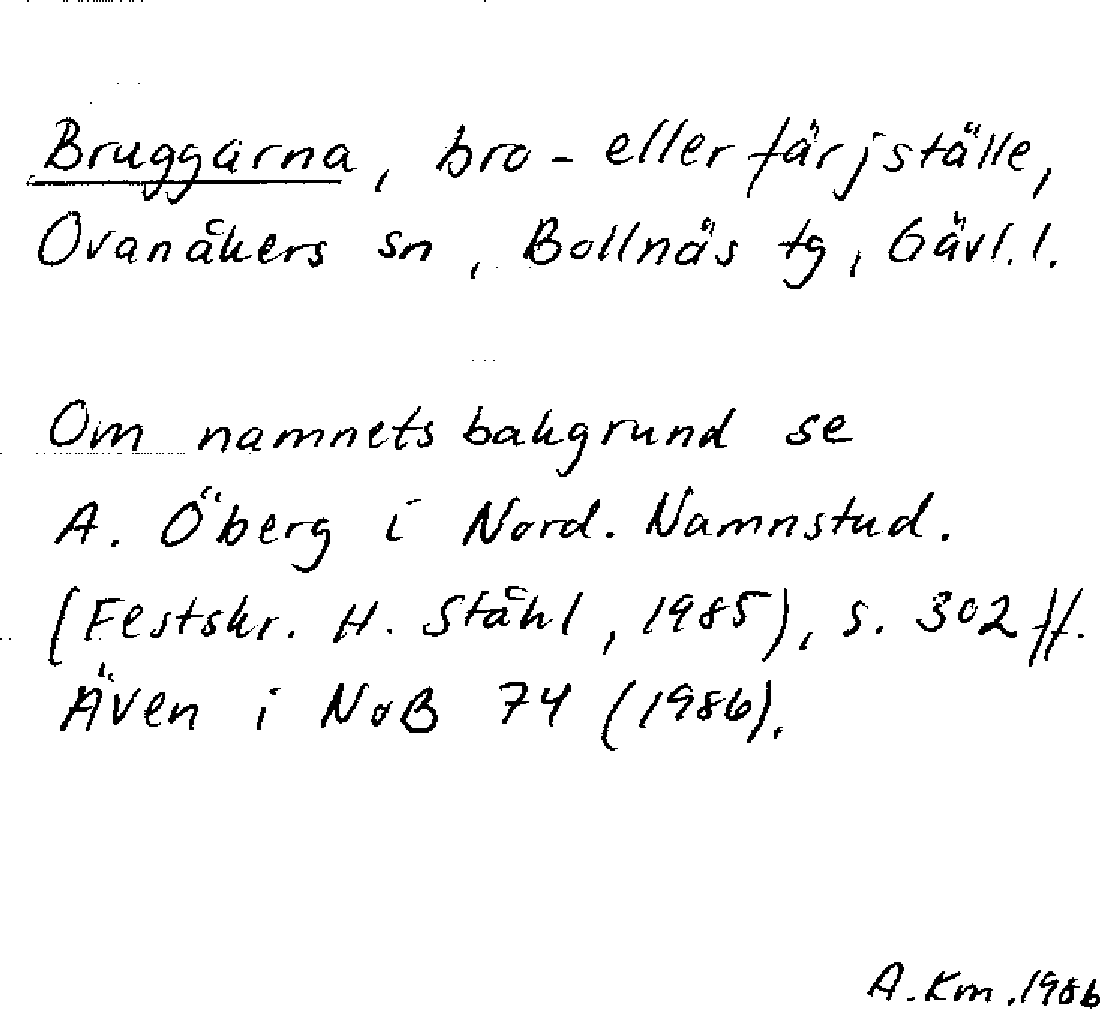 Bruggarna, bro- eller färjställe,
Ovanåkers sn, Bollnäs tg, Gävl. l.
Om namnets bakgrund se
A. Öberg i Nord. Namnstud.
(Festskr. H. Ståhl, 1985), s. 302 ff.
Även i NoB 74 (1986).
A. Km. 1986